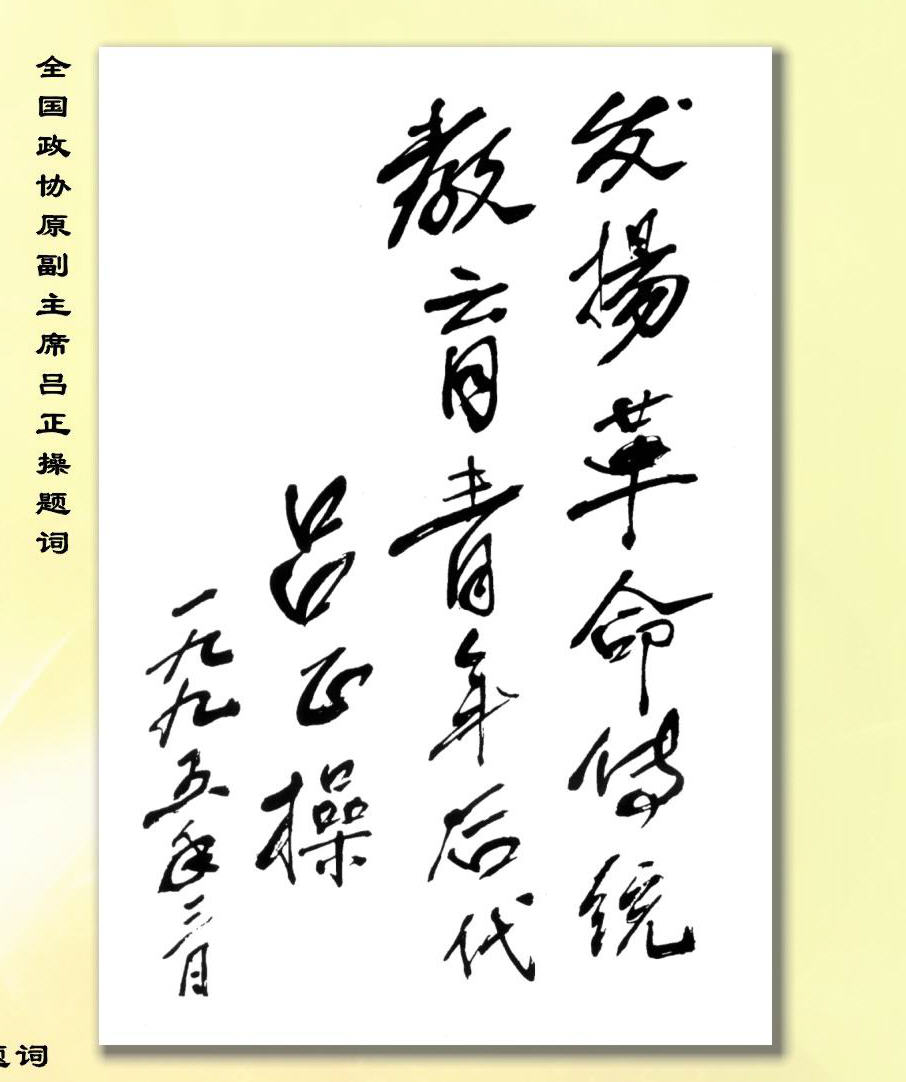 发揚革命传统
教育青年后代
吕正操
一九九五年三月
全国政协原副主席吕正操题词
题词